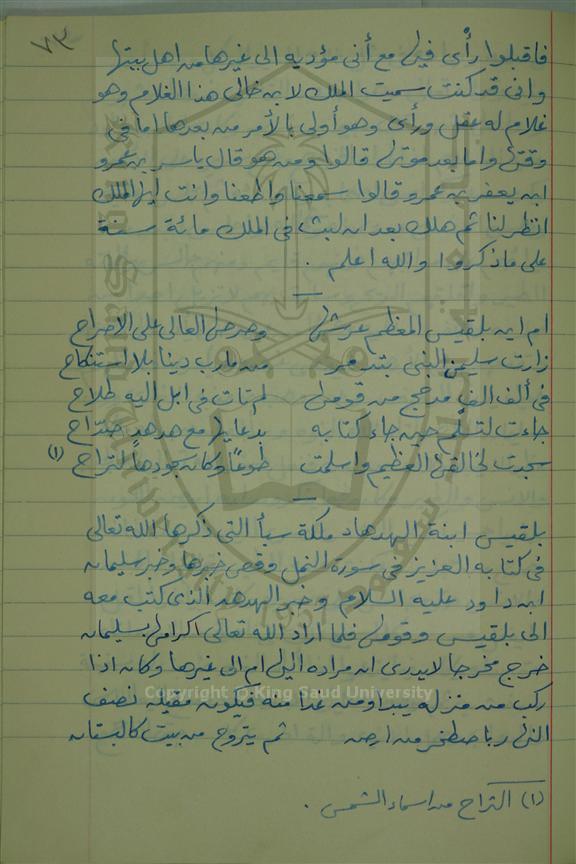 ٧٣
فاقبلوا رأى فيها مع أنى مؤديه الى غيرها من اهل بيتها
وانى قد كنت سميت الملك لابن خالى هذا الغلام وهو
غلام له عقل ورأى وهو أولى بالأمر من بعدها اما فى
وقتها واما بعد موتها قالوا ومن هو قال ياسر بن عمرو
ابن يعفر بن عمرو قالوا سمعنا واطعنا وانت ايها الملك
انظر لنا ثم هلك بعد ان لبث فى الملك مائة سنة
على ماذكروا والله اعلم .
ام اين بلقيس المعظم عرشها وصرحها العالى على الاصراح
زارت سليمن النبى بتدمر من مارب دينا بلا استنكاح
فى ألف الف مدجج من قومها لم تات فى ابل اليه طلاح
جاءت لتسلم حين جاء كتابه بدعايها مع هدهد صداح
سجدت لخالقها العظيم واسلمت طوعا وكان سجودها لتراح (١)
بلقيس ابنة الهدهاد ملكة سبأ التى ذكرها الله تعالى
فى كتابه العزيز فى سورة النمل وقص خبرها وخبر سليمان
ابن داود عليه السلام وخبر الهدهد الذى كتب معه
الى بلقيس وقومها فلما اراد الله تعالى اكرامها بسليمان
خرج مخرجا لايدرى ان مراده اليها ام الى غيرها وكان اذا
ركب من منزله يبدا ومن غدا منه فيكون مقيله نصف
النهار باصطخر من ارض ثم يتروح من بيت كالبستان
(١) التراح من اسماء الشمس .
Copyright © King Saud University